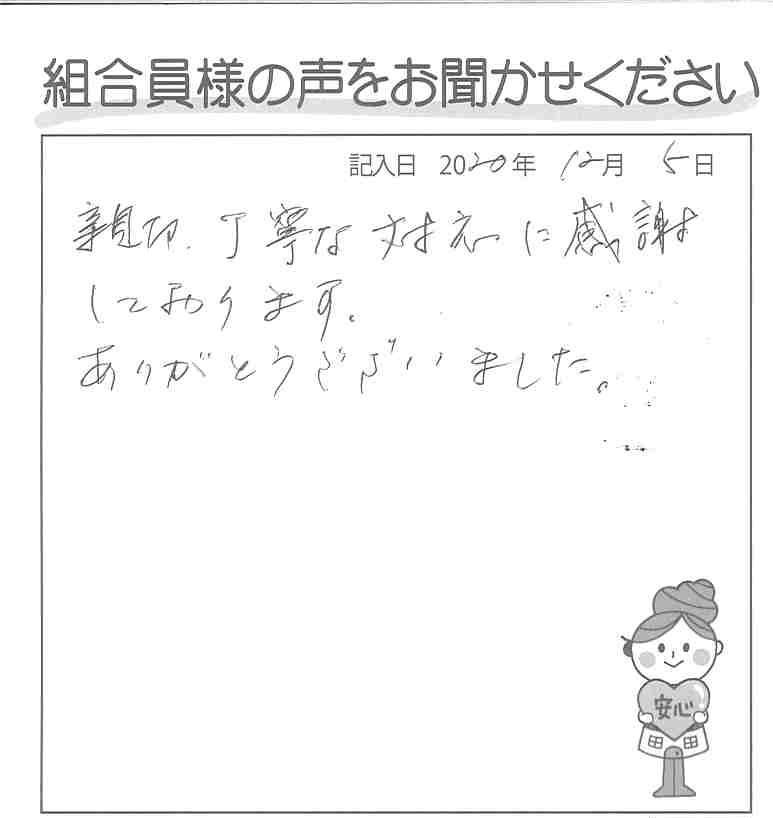 組合員様の声をお聞かせください
記入日 2020年 12月 5日
親切、丁寧な対応に感謝
しております。
ありがとうございました。
安心